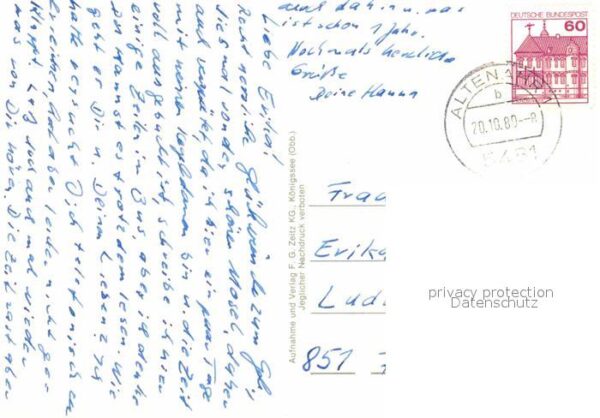 Liebe Erika!
Recht herzliche Glückwünsche zum Geb.,
dies sonder schöne Mosel daher
auch verspätet, da ich hier ein paar Tage
mit meinen Kegeldamen bin u. die Zeit
voll ausgebucht ist, schreibe ich nur
einige Zeilen im Bus, aber ich denke
Du kannst es trotzdem lesen. Wie
geht es Dir u. Deinen Lieben? Ich
hatte versucht Dich telefonisch zu
erreichen hat aber leider nicht ge-
klappt. Laß doch auch mal wieder
was von Dir hören. Die Zeit rast aber
auch dahin u. was
ist schon 1 Jahr.
Nochmals herzliche
Grüße
Deine Hanna
Aufnahme und Verlag F. G. Zeitz KG., Königssee (Obb.)
Jeglicher Nachdruck verboten
DEUTSCHE BUNDESPOST
60
ALTENAHR 1
b
20.10.89-8
5481
Frau
Erika
Ludw
851
privacy protection
Datenschutz